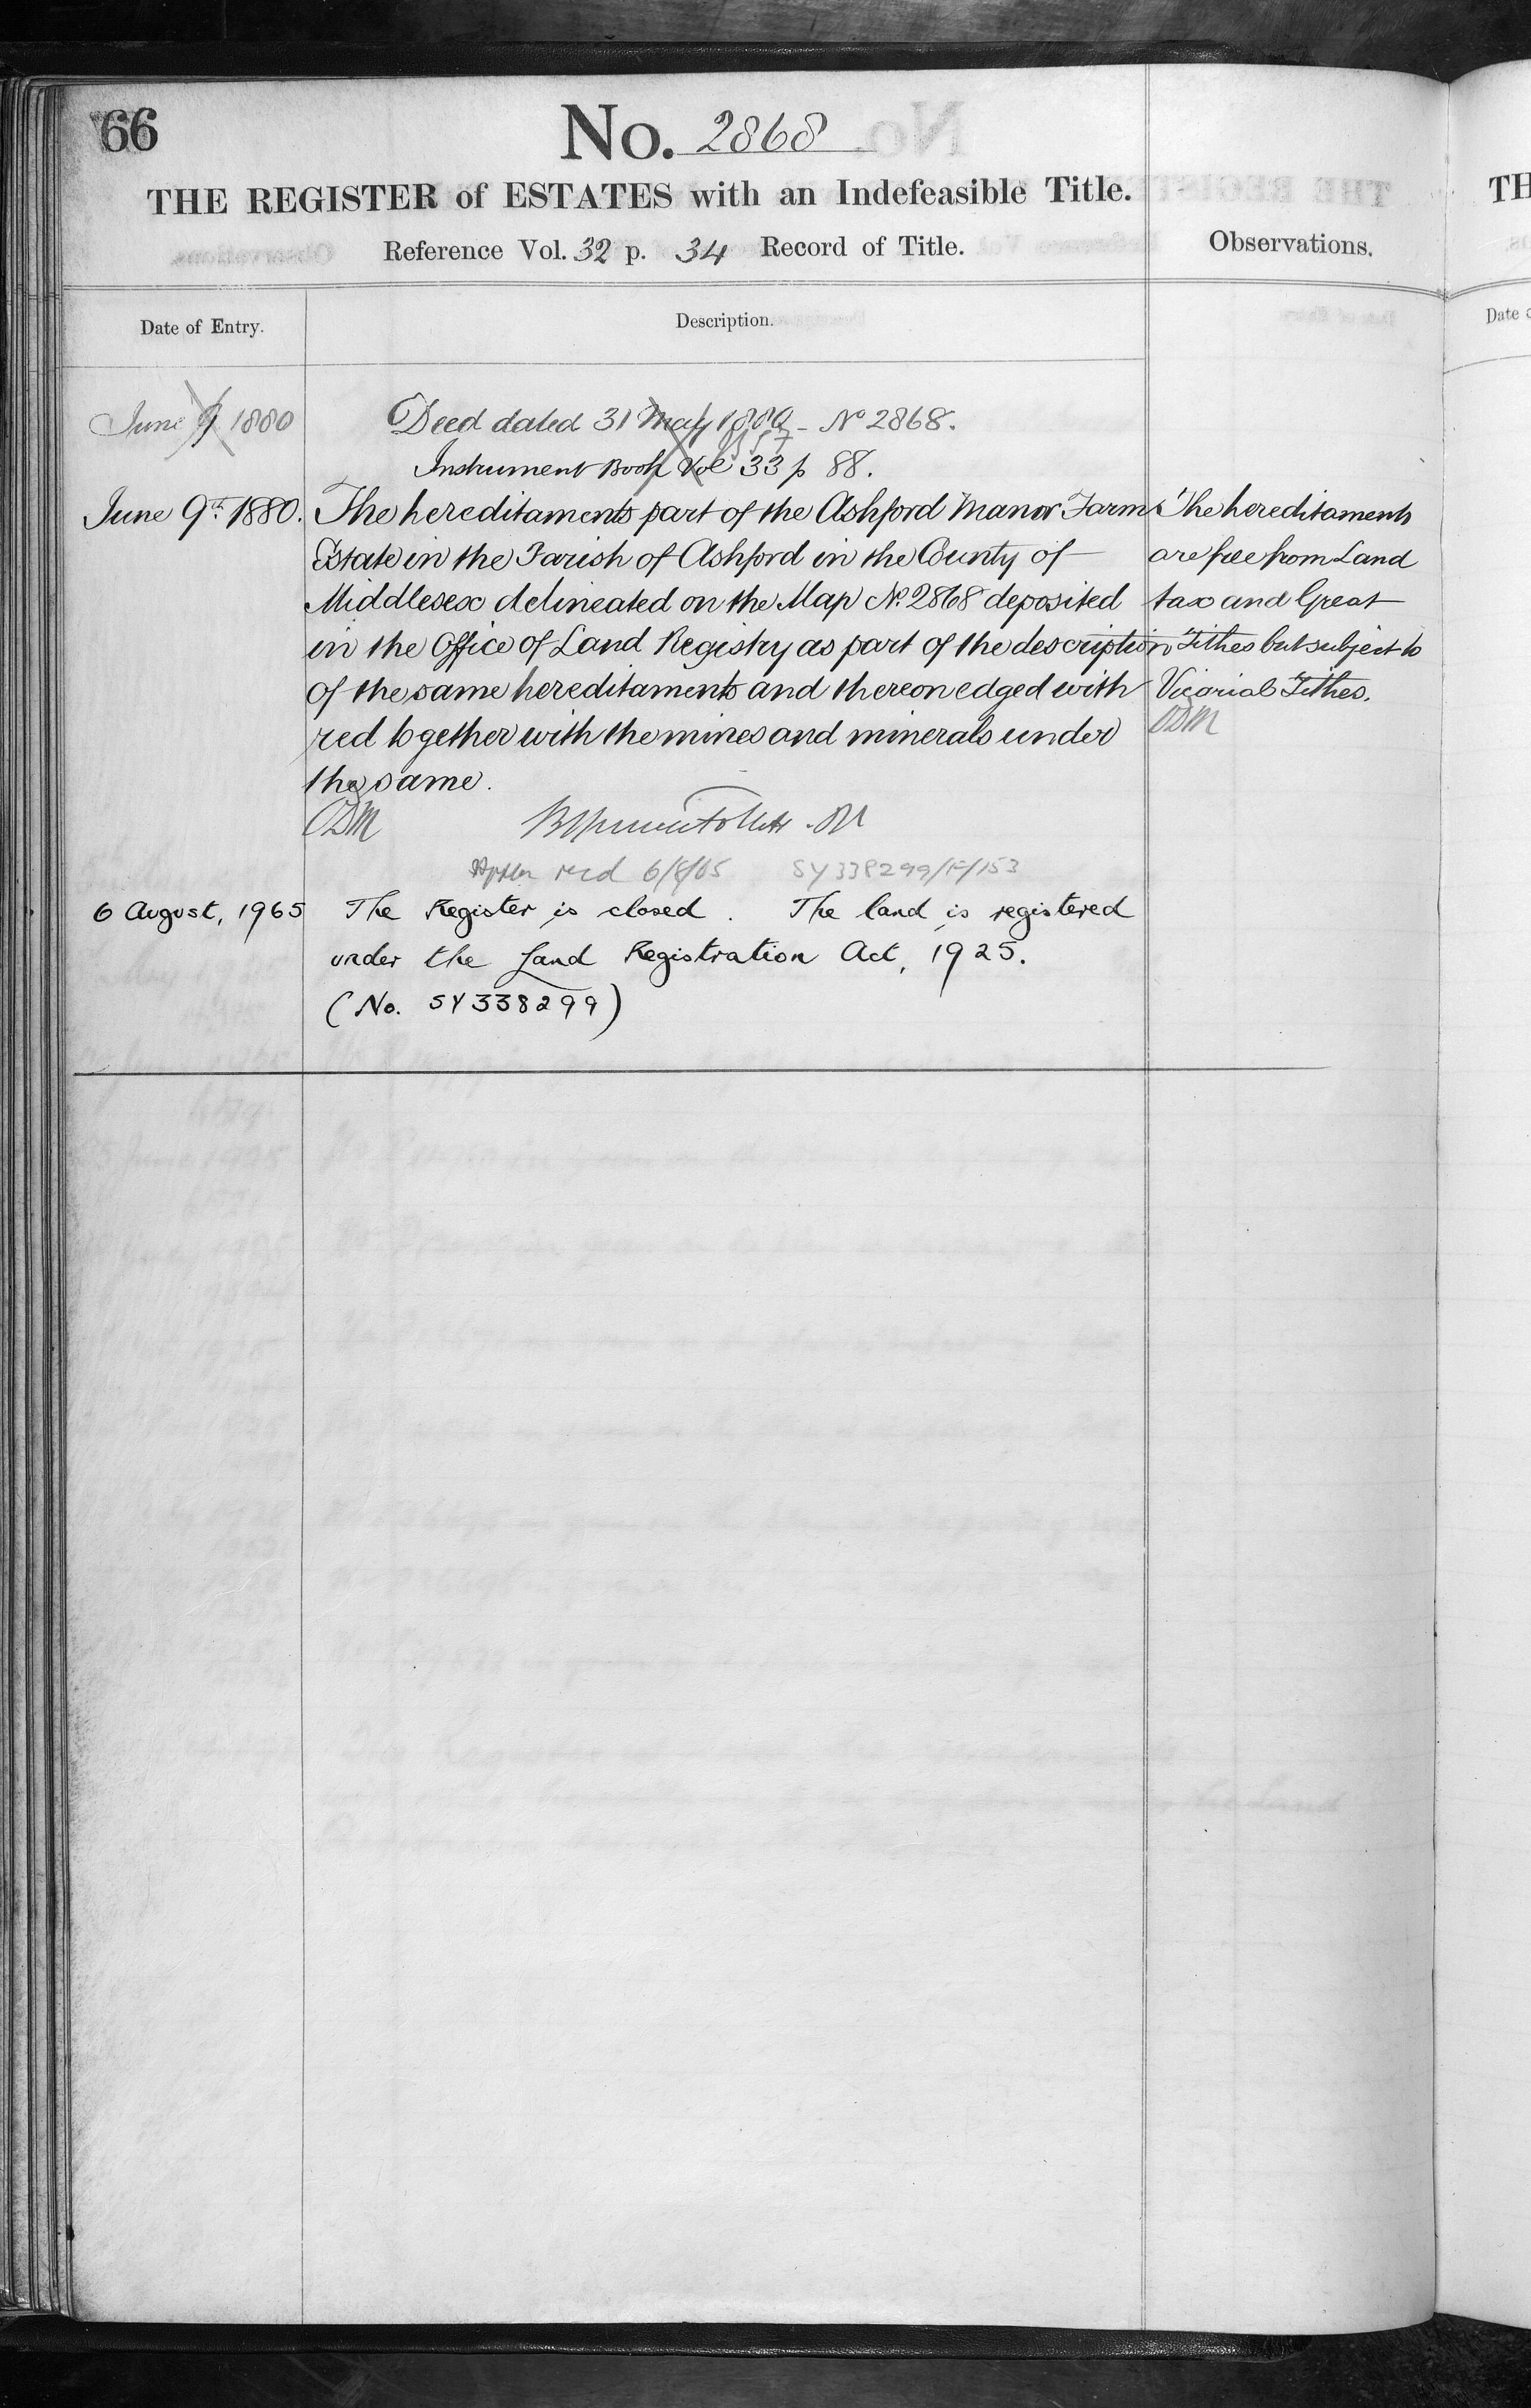 66
No. 2868
THE REGISTER of ESTATES with an Indefeasible Title.
Reference Vol. 32 p. 34 Record of Title.
Observations.
Date of Entry.
Description.
June 9 1880
Deed dated 31 May 1880 - No 2868.
Instrument Book Vol 33 p 88.
June 9th 1880.
The hereditaments part of the Ashford Manor Farm
Estate in the Parish of Ashford in the County of
Middlesex delineated on the Map No. 2868 deposited
in the Office of Land Registry as part of the description
of the same hereditaments and thereon edged with
red together with the mines and minerals under
the same.
The hereditaments
are free from Land
tax and Great
Tithes but subject to
Vicarial Tithes.
recd 6/8/65 SY338299/F/153
6 August, 1965
The Register is closed. The land is registered
under the Land Registration Act, 1925.
(No. SY338299)
TH
Date